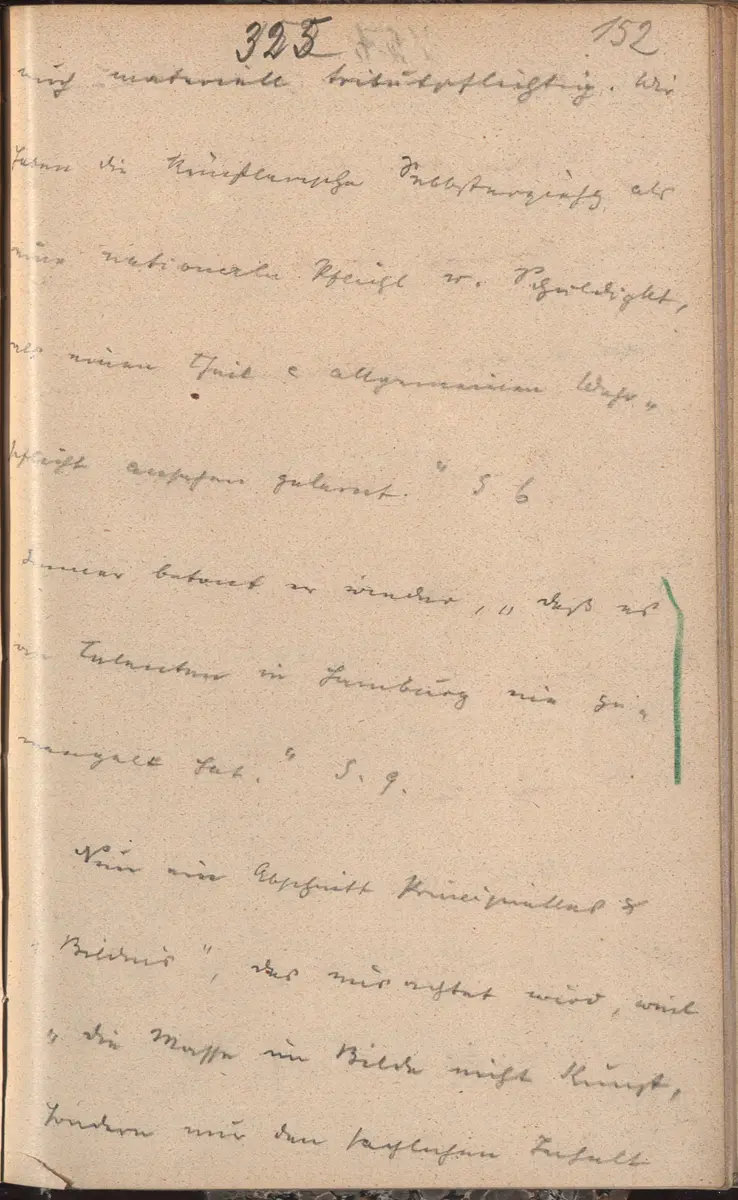 325 152
auch materiell tributpflichtig. Wir
haben die Künstlerische Selbsterziehg als
eine nationale Pflicht u. Schuldigkt,
als einen Theil e allgemeinen Wehr„
pflicht ansehen gelernt." S. 6
Immer betont er wieder, „daß es
an Talenten in Hamburg nie ge„
mangelt hat." S. 9.
Nun ein Abschnitt Principielles
Bildnis", das mißachtet wird, weil
„die Masse im Bilde nicht Kunst,
sondern nur den sachlichen Inhalt